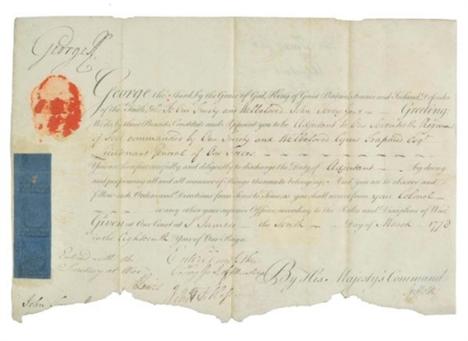 George R
George the Third by the Grace of God, King of Great Britain, France and Ireland, Defender
of the Faith, &c. To Our Trusty and Welbeloved John Gent. Greeting
We do by these Presents, Constitute and Appoint you to be Adjutant to Our Regiment
of Foot commanded by Our Trusty and Welbeloved Cyrus Trapaud Esqr.
Lieutenant General of Our Forces
You are therefore carefully and diligently to discharge the Duty of Adjutant by doing
and performing all and all manner of Things thereunto belonging. And you are to observe and
follow such Orders and Directions from time to time, as you shall receive from your Colonel
or any other your superior Officer, according to the Rules and Discipline of War
Given at Our Court at St. James's the Tenth Day of March 1778
in the Eighteenth Year of Our Reign
Entred with the
Secretary at War
By His Majesty's Command
John